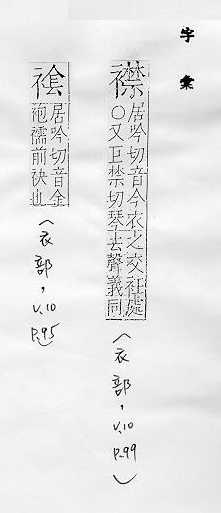 字彙
襟
居吟切音今衣之交衽處
〇又巨禁切琴去聲義同
(衣部,V.10
P.99)
居吟切音金
袍襦前袂也
(衣部,V.10
P.95)